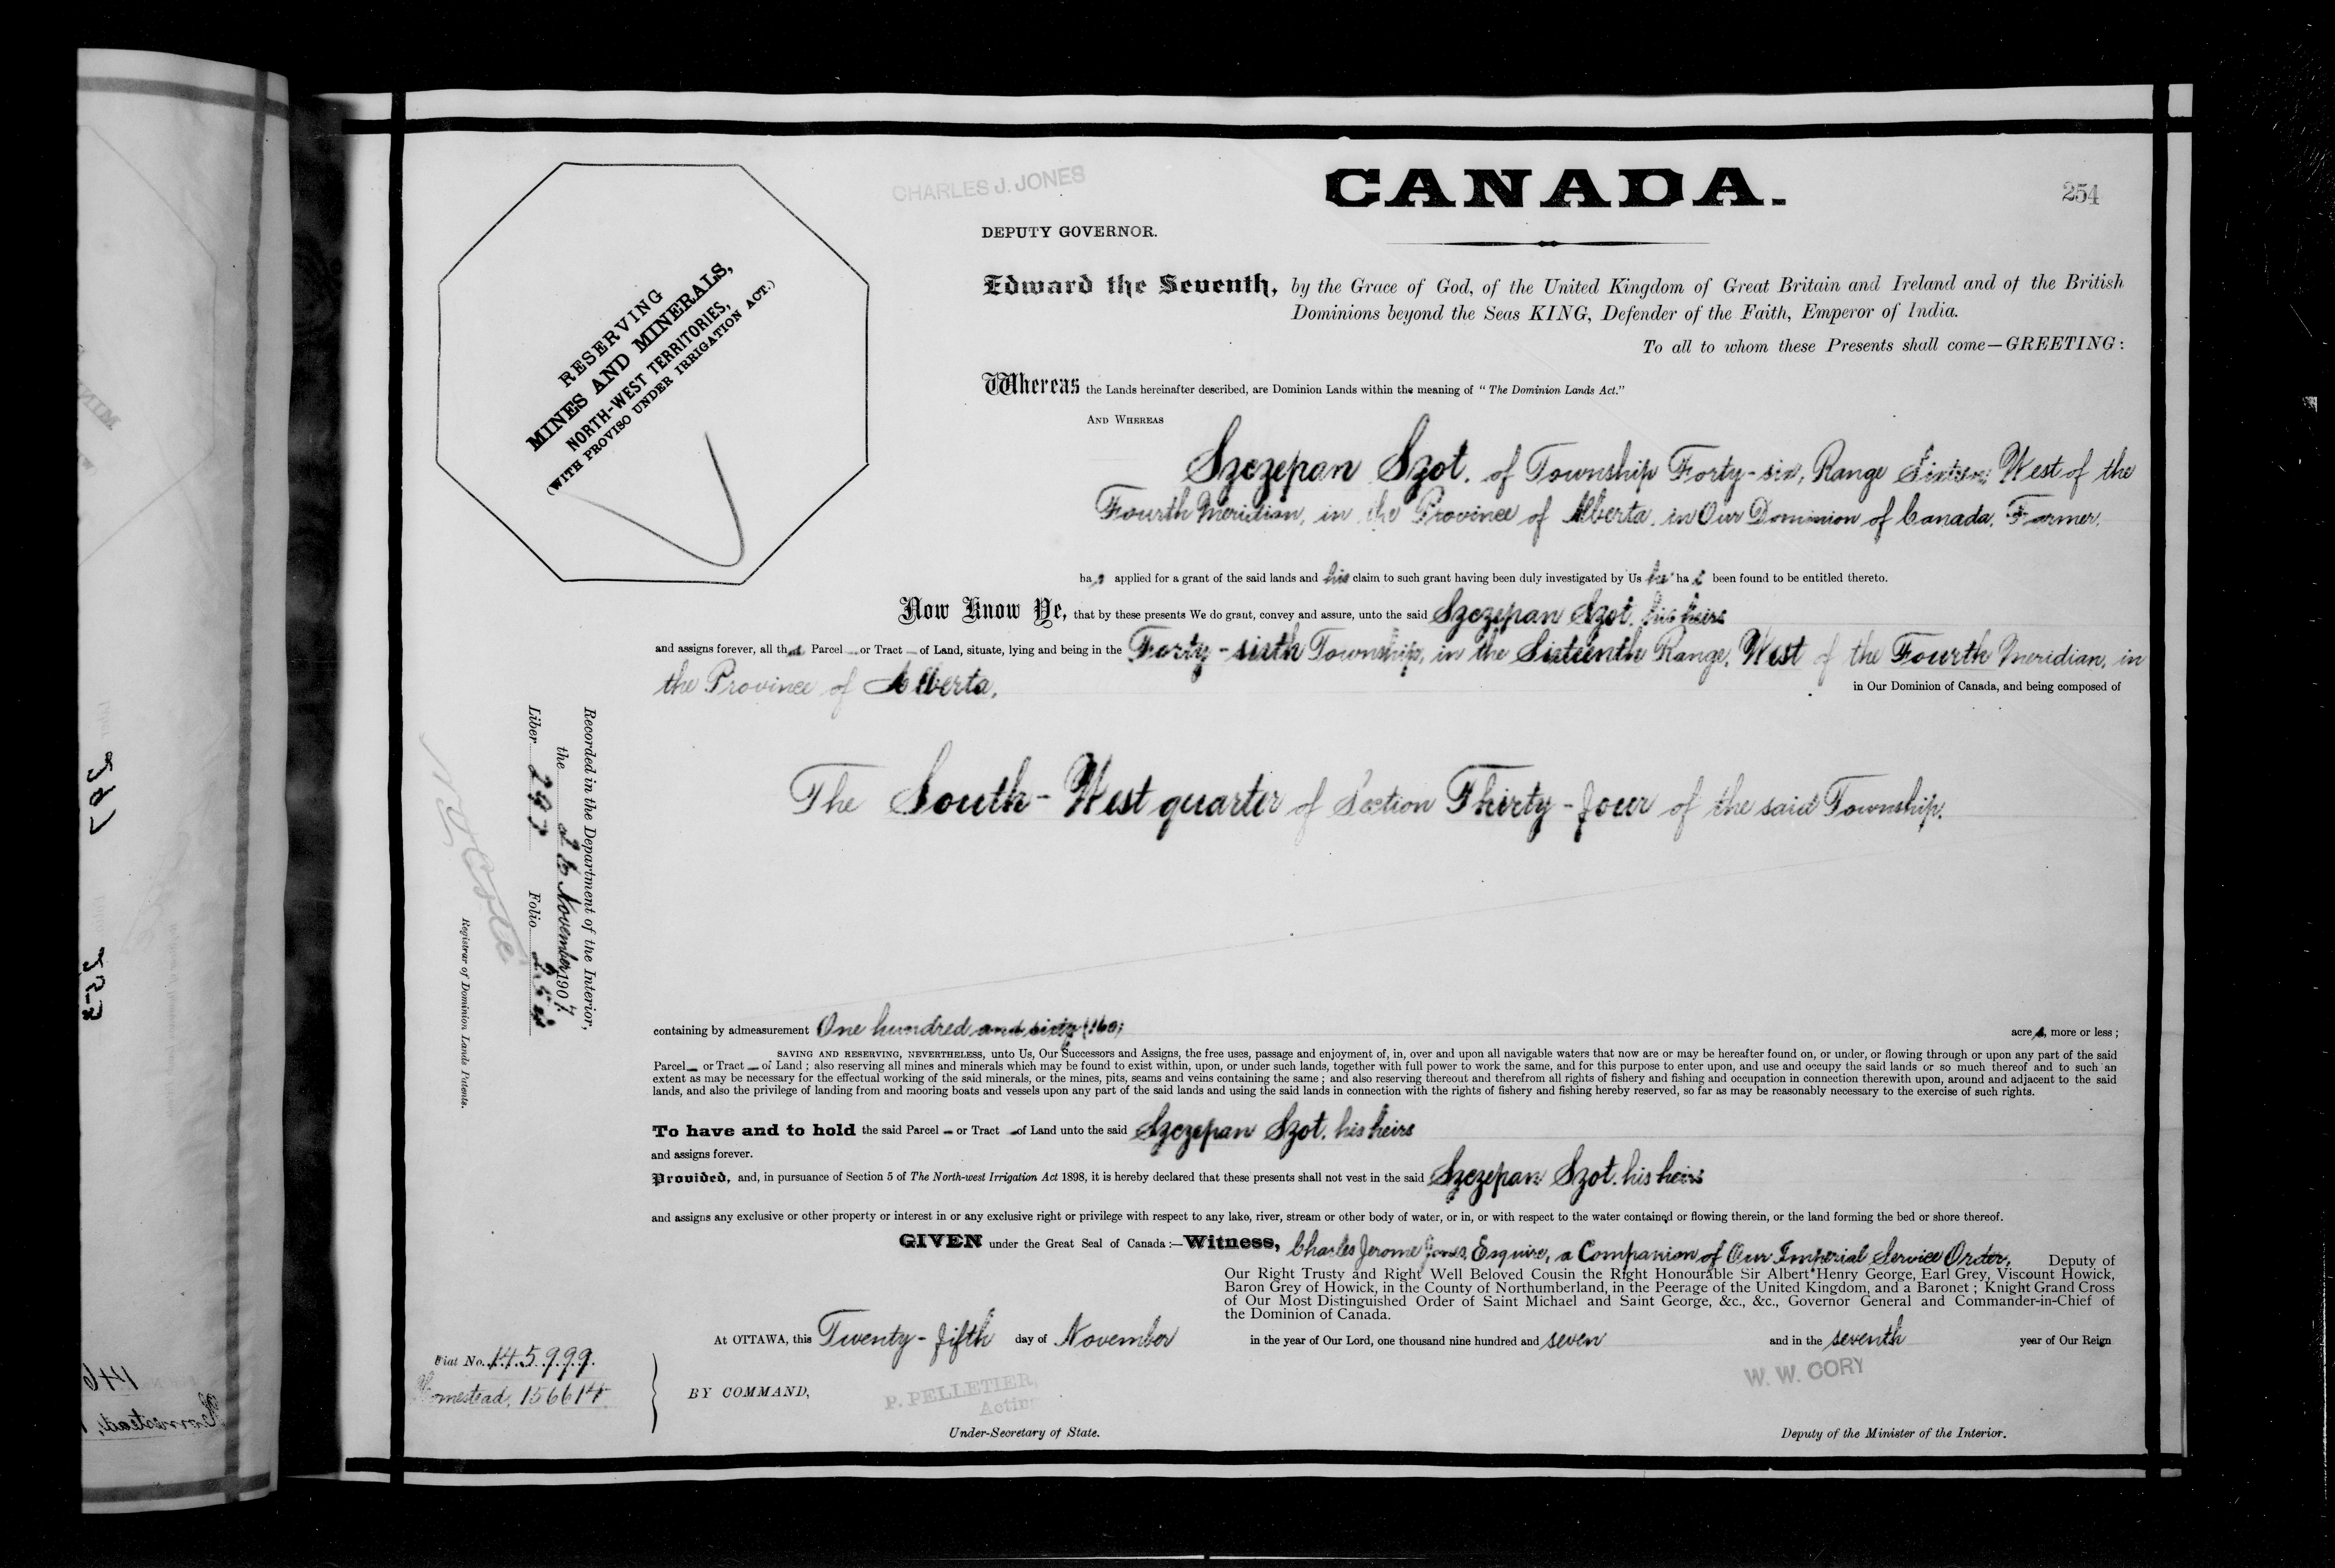 CHARLES J. JONES
CANADA.
254
DEPUTY GOVERNOR.
RESERVING
MINES AND MINERALS,
NORTH-WEST TERRITORIES,
(WITH PROVISO UNDER IRRIGATION ACT.)
Edward the Seventh, by the Grace of God, of the United Kingdom of Great Britain and Ireland and of the British
Dominions beyond the Seas KING, Defender of the Faith, Emperor of India.
To all to whom these Presents shall come—GREETING:
Whereas the Lands hereinafter described, are Dominion Lands within the meaning of "The Dominion Lands Act."
AND WHEREAS
Szczepan Szot, of Township Forty-six, Range Sixteen West of the
Fourth Meridian, in the Province of Alberta, in Our Dominion of Canada, Farmer,
has applied for a grant of the said lands and his claim to such grant having been duly investigated by Us he has been found to be entitled thereto.
Now Know Ye, that by these presents We do grant, convey and assure, unto the said Szczepan Szot, his heirs
and assigns forever, all that Parcel or Tract of Land, situate, lying and being in the Forty-sixth Township, in the Sixteenth Range, West of the Fourth Meridian, in
the Province of Alberta, in Our Dominion of Canada, and being composed of
The South-West quarter of Section Thirty-four of the said Township.
containing by admeasurement One hundred and sixty (160) acres, more or less;
SAVING AND RESERVING, NEVERTHELESS, unto Us, Our Successors and Assigns, the free uses, passage and enjoyment of, in, over and upon all navigable waters that now are or may be hereafter found on, or under, or flowing through or upon any part of the said
Parcel or Tract of Land; also reserving all mines and minerals which may be found to exist within, upon, or under such lands, together with full power to work the same, and for this purpose to enter upon, and use and occupy the said lands or so much thereof and to such an
extent as may be necessary for the effectual working of the said minerals, or the mines, pits, seams and veins containing the same; and also reserving thereout and therefrom all rights of fishery and fishing and occupation in connection therewith upon, around and adjacent to the said
lands, and also the privilege of landing from and mooring boats and vessels upon any part of the said lands and using the said lands in connection with the rights of fishery and fishing hereby reserved, so far as may be reasonably necessary to the exercise of such rights.
To have and to hold the said Parcel or Tract of Land unto the said Szczepan Szot, his heirs
and assigns forever.
Provided, and, in pursuance of Section 5 of The North-west Irrigation Act 1898, it is hereby declared that these presents shall not vest in the said Szczepan Szot, his heirs
and assigns any exclusive or other property or interest in or any exclusive right or privilege with respect to any lake, river, stream or other body of water, or in, or with respect to the water contained or flowing therein, or the land forming the bed or shore thereof.
GIVEN under the Great Seal of Canada:—Witness, Charles Jerome Jones, Esquire, a Companion of Our Imperial Service Order, Deputy of
Our Right Trusty and Right Well Beloved Cousin the Right Honourable Sir Albert Henry George, Earl Grey, Viscount Howick,
Baron Grey of Howick, in the County of Northumberland, in the Peerage of the United Kingdom, and a Baronet; Knight Grand Cross
of Our Most Distinguished Order of Saint Michael and Saint George, &c., &c., Governor General and Commander-in-Chief of
the Dominion of Canada.
At OTTAWA, this Twenty-fifth day of November in the year of Our Lord, one thousand nine hundred and seven and in the seventh year of Our Reign
BY COMMAND,
P. PELLETIER,
Acting
Under-Secretary of State.
W. W. CORY
Deputy of the Minister of the Interior.
Fiat No. 145999.
Homestead, 156614.
Recorded in the Department of the Interior,
the 26 November 1907.
Liber 297 Folio 254
N O Coté
Registrar of Dominion Lands Patents.
297
253
146
Homestead,